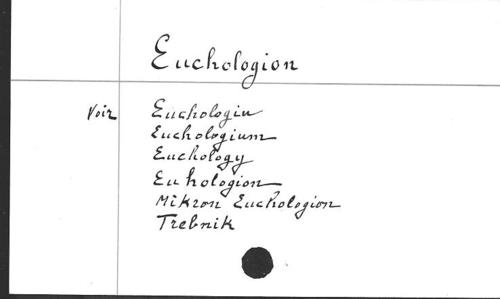 Euchologion
Voir Euchologiu
Euchologium
Euchology
Euhologion
Mikron Euchologion
Trebnik